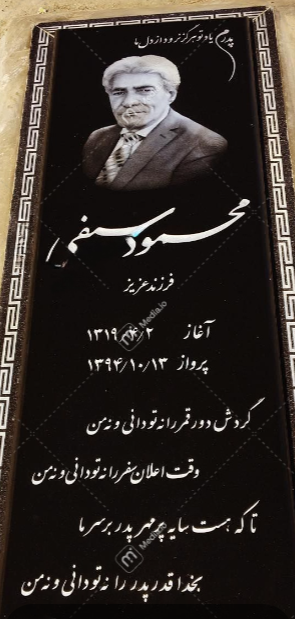 پدرم یاد تو هرگز نرود از دل ما
محمود سیفی
فرزند عزیز
آغاز ۱۳۱۹/۴/۲
پرواز ۱۳۹۴/۱۰/۱۳
گردش دور قمر را نه تو دانی و نه من
وقت اعلان سفر را نه تو دانی و نه من
تا که هست سایه پر مهر پدر بر سر ما
بخدا قدر پدر را نه تو دانی و نه من
Media.io
Media.io